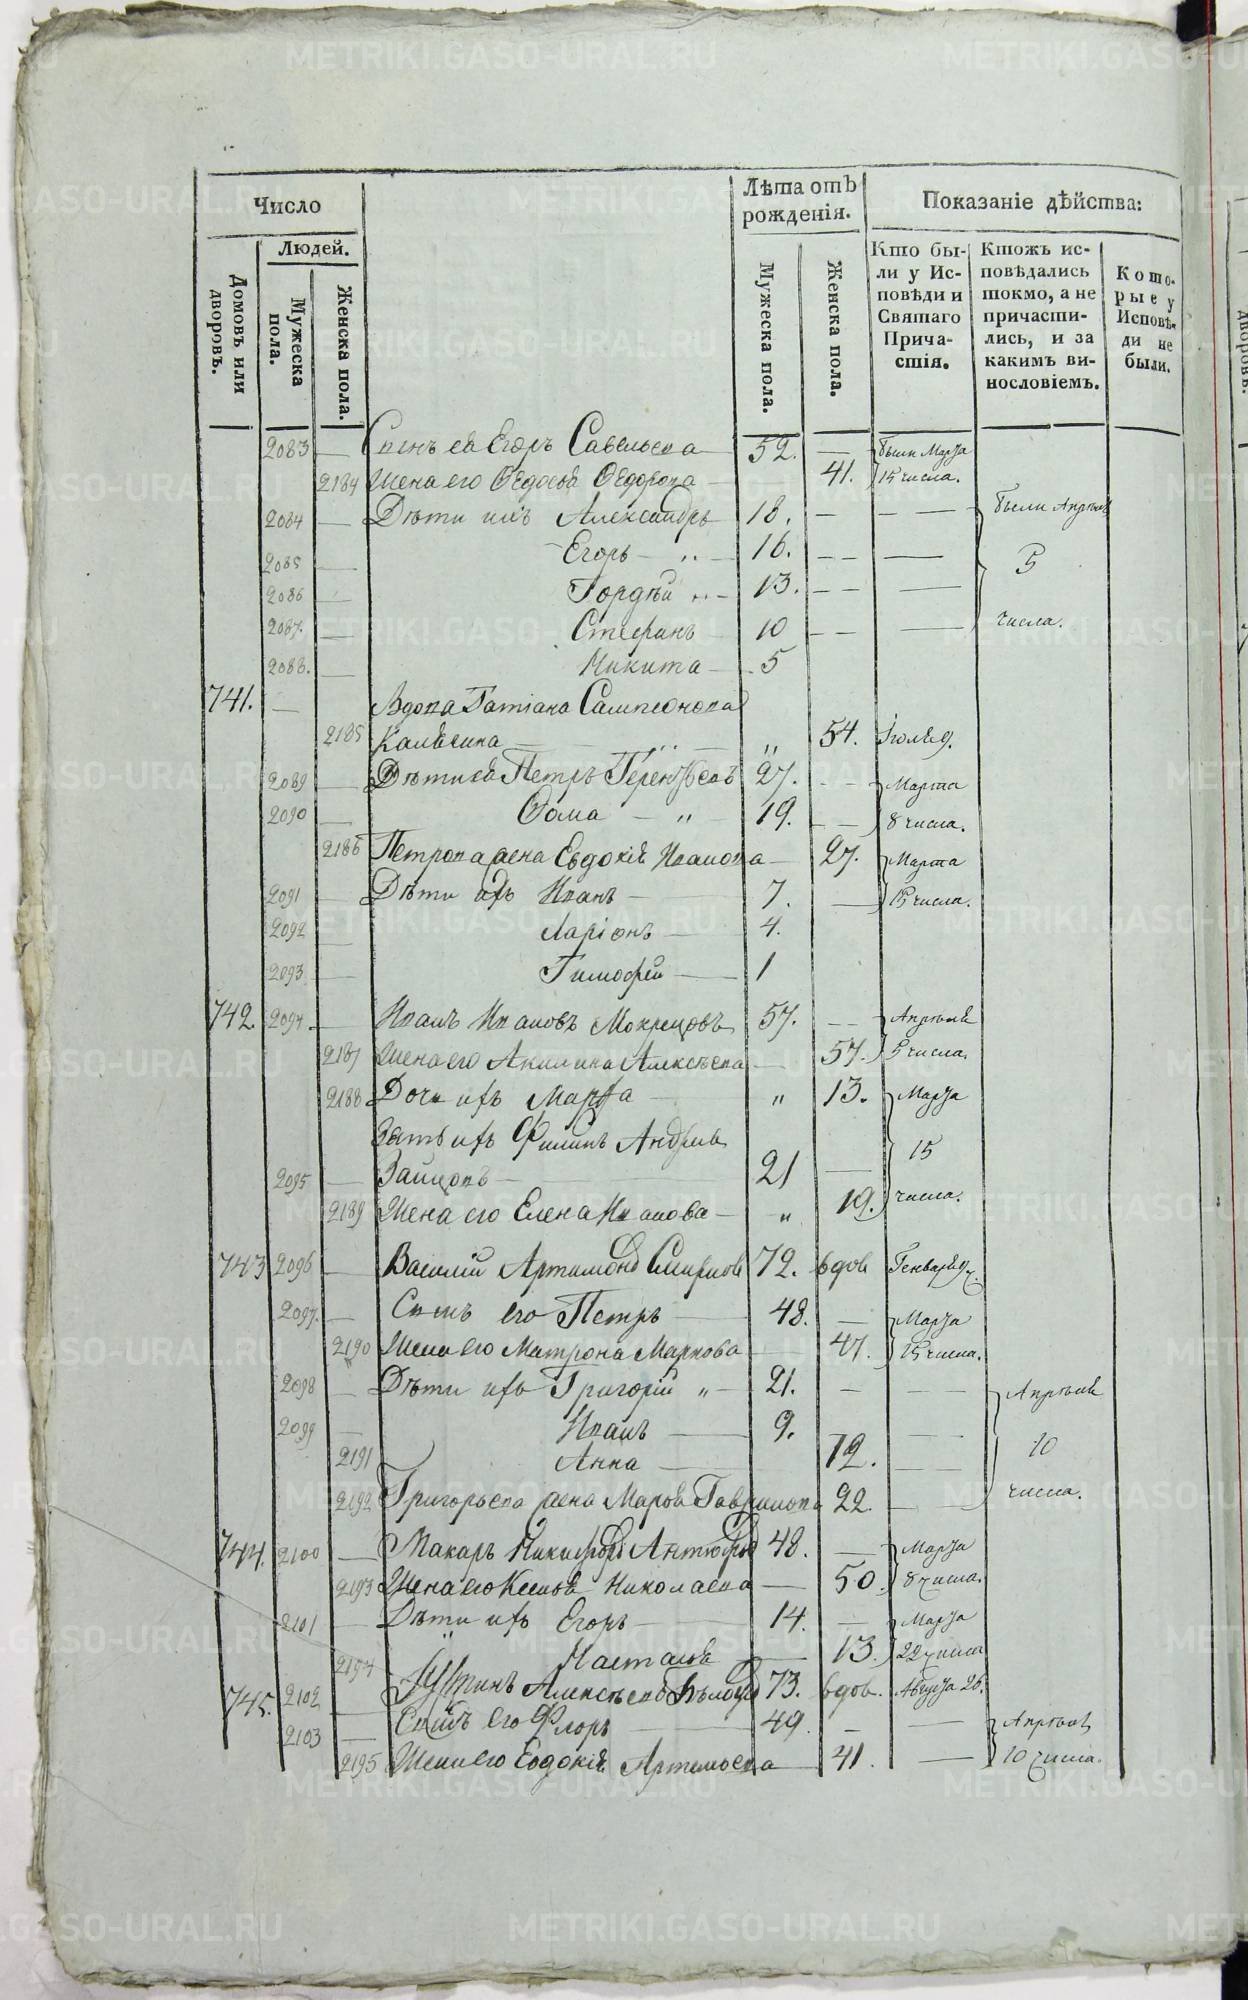 Число
Лѣта отъ рожденія.
Показаніе дѣйства:
Людей.
Домовъ или дворовъ.
Мужеска пола.
Женска пола.
Мужеска пола.
Женска пола.
Кто бы-
ли у Ис-
повѣди и
Святаго
Прича-
стія.
Ктожъ ис-
повѣдались
токмо, а не
причасти-
лись, и за
какимъ ви-
нословіемъ.
Кото-
рые у
Исповѣ-
ди не
были.
2083 — Сынъ ея Егоръ Савельева 52. — были Марта
2184 Жена его Ѳедосья Ѳедорова — 41. 15 числа.
2084 — Дѣти ихъ Александръ 18. — — — были Апрѣля
2085 — Егоръ — „ — 16. — — — 5
2086 — Гордѣй „ — 13. — — —
2087. — Стефанъ — 10 — — — числа.
2088. — Никита — 5
741. — Вдова Татіана Сампсонова
2185 Калѣгина — „ — „ 54. Іюля 9.
2089 — Дѣти ея Петръ Терентьевъ 27. — — Марта
2090 — Ѳома — „ — 19. — — 8 числа.
2186 Петрова жена Евдокія Иванова — 27. Марта
2091 — Дѣти ихъ Иванъ — 7. — 15 числа.
2092 — Ларіонъ — 4.
2093 — Тимофей — 1
742. 2094. — Иванъ Ивановъ Мокрецовъ 57. — — Апрѣля
2187 Жена его Акилина Алексѣева — 57. 5 числа.
2188 Дочь ихъ Марѳа — „ 13. Марта
Зять ихъ Филипъ Андреевъ 15
2095 — Зайцовъ — 21 —
2189 Жена его Елена Иванова — „ 19. числа.
743 2096 — Василій Артамоновъ Смирновъ 72. вдов Генваря 9.
2097. — Сынъ его Петръ — 48. — Марта
2190 Жена его Матрона Маркова — 47. 15 числа.
2098 — Дѣти ихъ Григорій „ — 21. — — — Апрѣля
2099 — Иванъ — 9. — 10
2191 Анна — 12. —
2192 Григорьева жена Марѳа Гаврилова 22. — числа.
744. 2100 — Макаръ Никифоровъ 48. — Марта
2193 Жена его Ксенія Николаева — 50. 8 числа.
2101 — Дѣти ихъ Егоръ — 14. — Марта
2194 Настасья — 13. 22 числа
745. 2102 — Устинъ Алексѣевъ 73. вдов. Августа 26.
2103 — Сынъ его Флоръ — 49. — — Апрѣля
2195 Жена его Евдокія Артемьева 41. — 10 числа.
METRIKI.GASO-URAL.RU